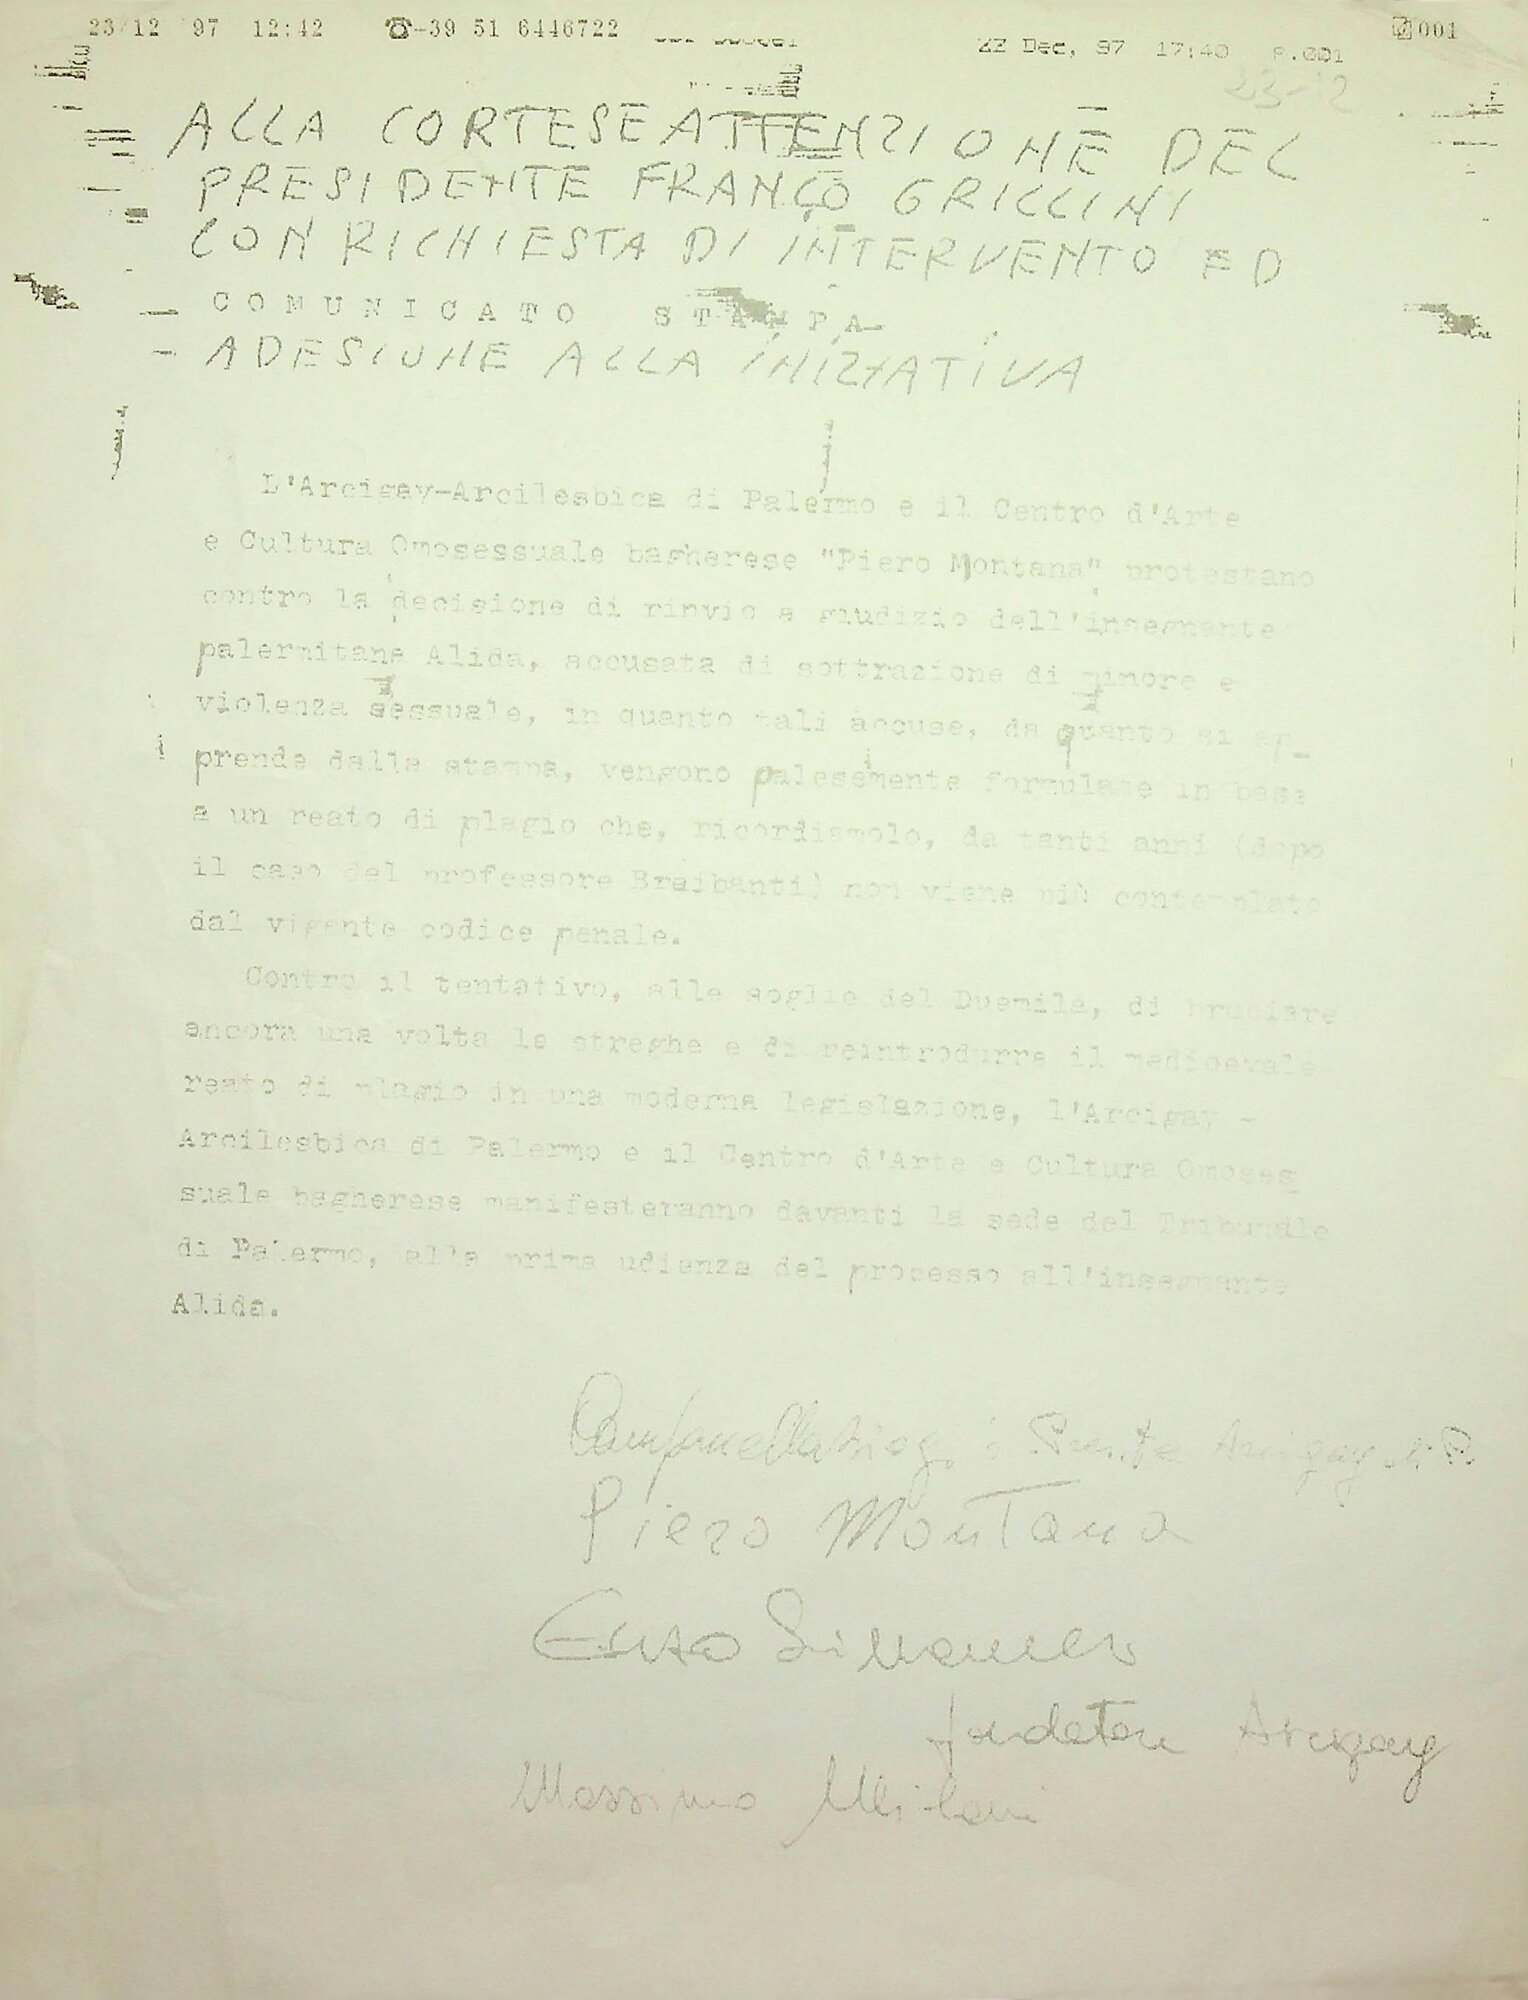 23/12 '97 12:42 ☎+39 51 6446722 001
22 Dec, 97 17:40 P.001
23-12
ALLA CORTESE ATTENZIONE DEL
PRESIDENTE FRANCO GRILLINI
CON RICHIESTA DI INTERVENTO ED
COMUNICATO STAMPA
- ADESIONE ALLA INIZIATIVA
L'Arcigay-Arcilesbica di Palermo e il Centro d'Arte
e Cultura Omosessuale bagherese "Piero Montana" protestano
contro la decisione di rinvio a giudizio dell'insegnante
palermitana Alida, accusata di sottrazione di minore e
violenza sessuale, in quanto tali accuse, da quanto si ap_
prende dalla stampa, vengono palesemente formulate in base
a un reato di plagio che, ricordiamolo, da tanti anni (dopo
il caso del professore Braibanti) non viene più contemplato
dal vigente codice penale.
Contro il tentativo, alle soglie del Duemila, di bruciare
ancora una volta le streghe e di reintrodurre il medioevale
reato di plagio in una moderna legislazione, l'Arcigay -
Arcilesbica di Palermo e il Centro d'Arte e Cultura Omoses
suale bagherese manifesteranno davanti la sede del Tribunale
di Palermo, alla prima udienza del processo all'insegnante
Alida.
Piero Montana
Enzo
Arcigay
Massimo Milani